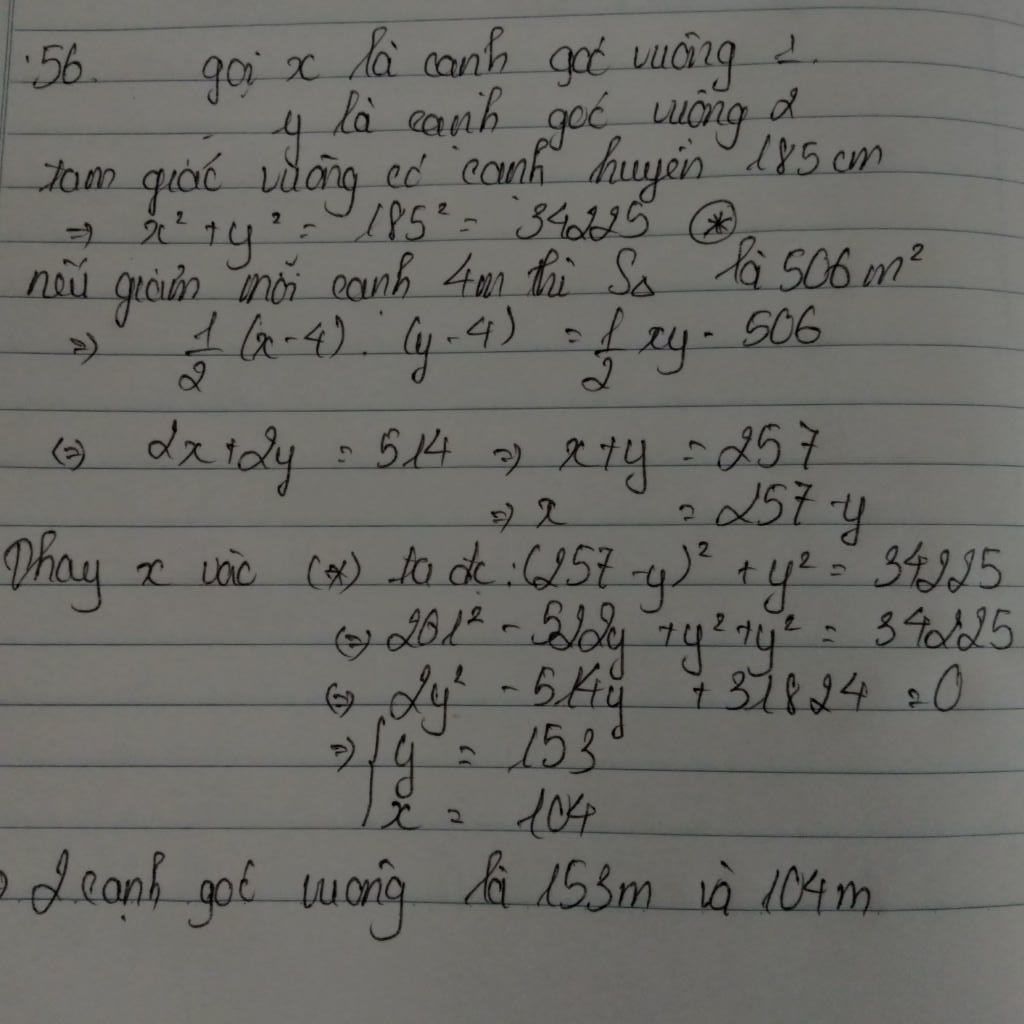 56. gọi x là canh goć vuông 1.
y là cạnh goć vuông 2
tam giác vuông có canh huyền 185 cm
⇒ x² + y² = 185² = 34225 (*)
nếu giảm mỗi canh 4m thì S∆ là 506 m²
⇒) 1/2 (x - 4) . (y - 4) = 1/2 xy - 506
(⇒) 2x + 2y = 514 ⇒) x + y = 257
⇒) x = 257 - y
Thay x vào (*) ta đc : (257 - y)² + y² = 34225
(⇒) 201² - 522y + y² + y² = 34225
(⇒) 2y² - 514y + 31824 = 0
⇒) { y = 153
x = 104
2 cạnh goć vuong là 153m và 104m